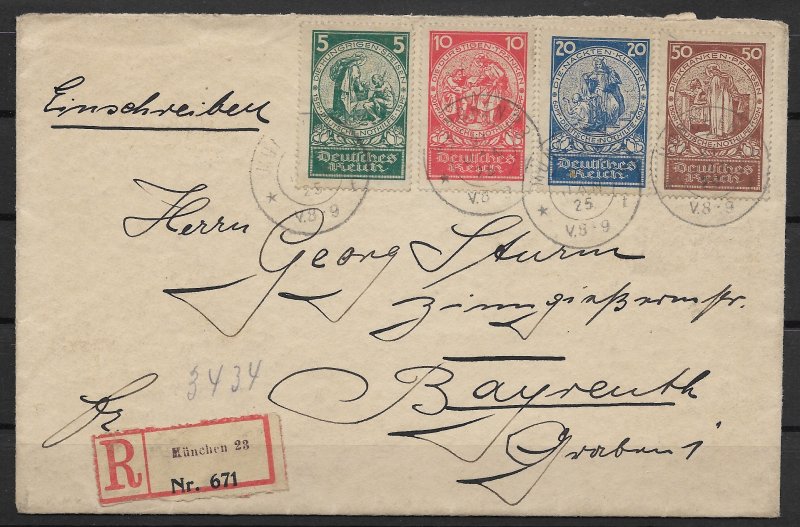 5 DIE HUNGRIGEN SPEISEN 5
Deutsches
Reich
10 DIE DURSTIGEN TRÄNKEN 10
Deutsches
Reich
20 DIE NACKTEN KLEIDEN 20
DEUTSCHE NOTHILFE
Deutsches
Reich
50 DIE KRANKEN PFLEGEN 50
DEUTSCHE NOTHILFE
Deutsches
Reich
25
V.8-9
V.8-9
25
V.8-9
V.8-9
Einschreiben
Herrn
Georg Sturm
Zinngießermstr.
Bayreuth
Graben 1
fr.
3434
R
München 23
Nr. 671